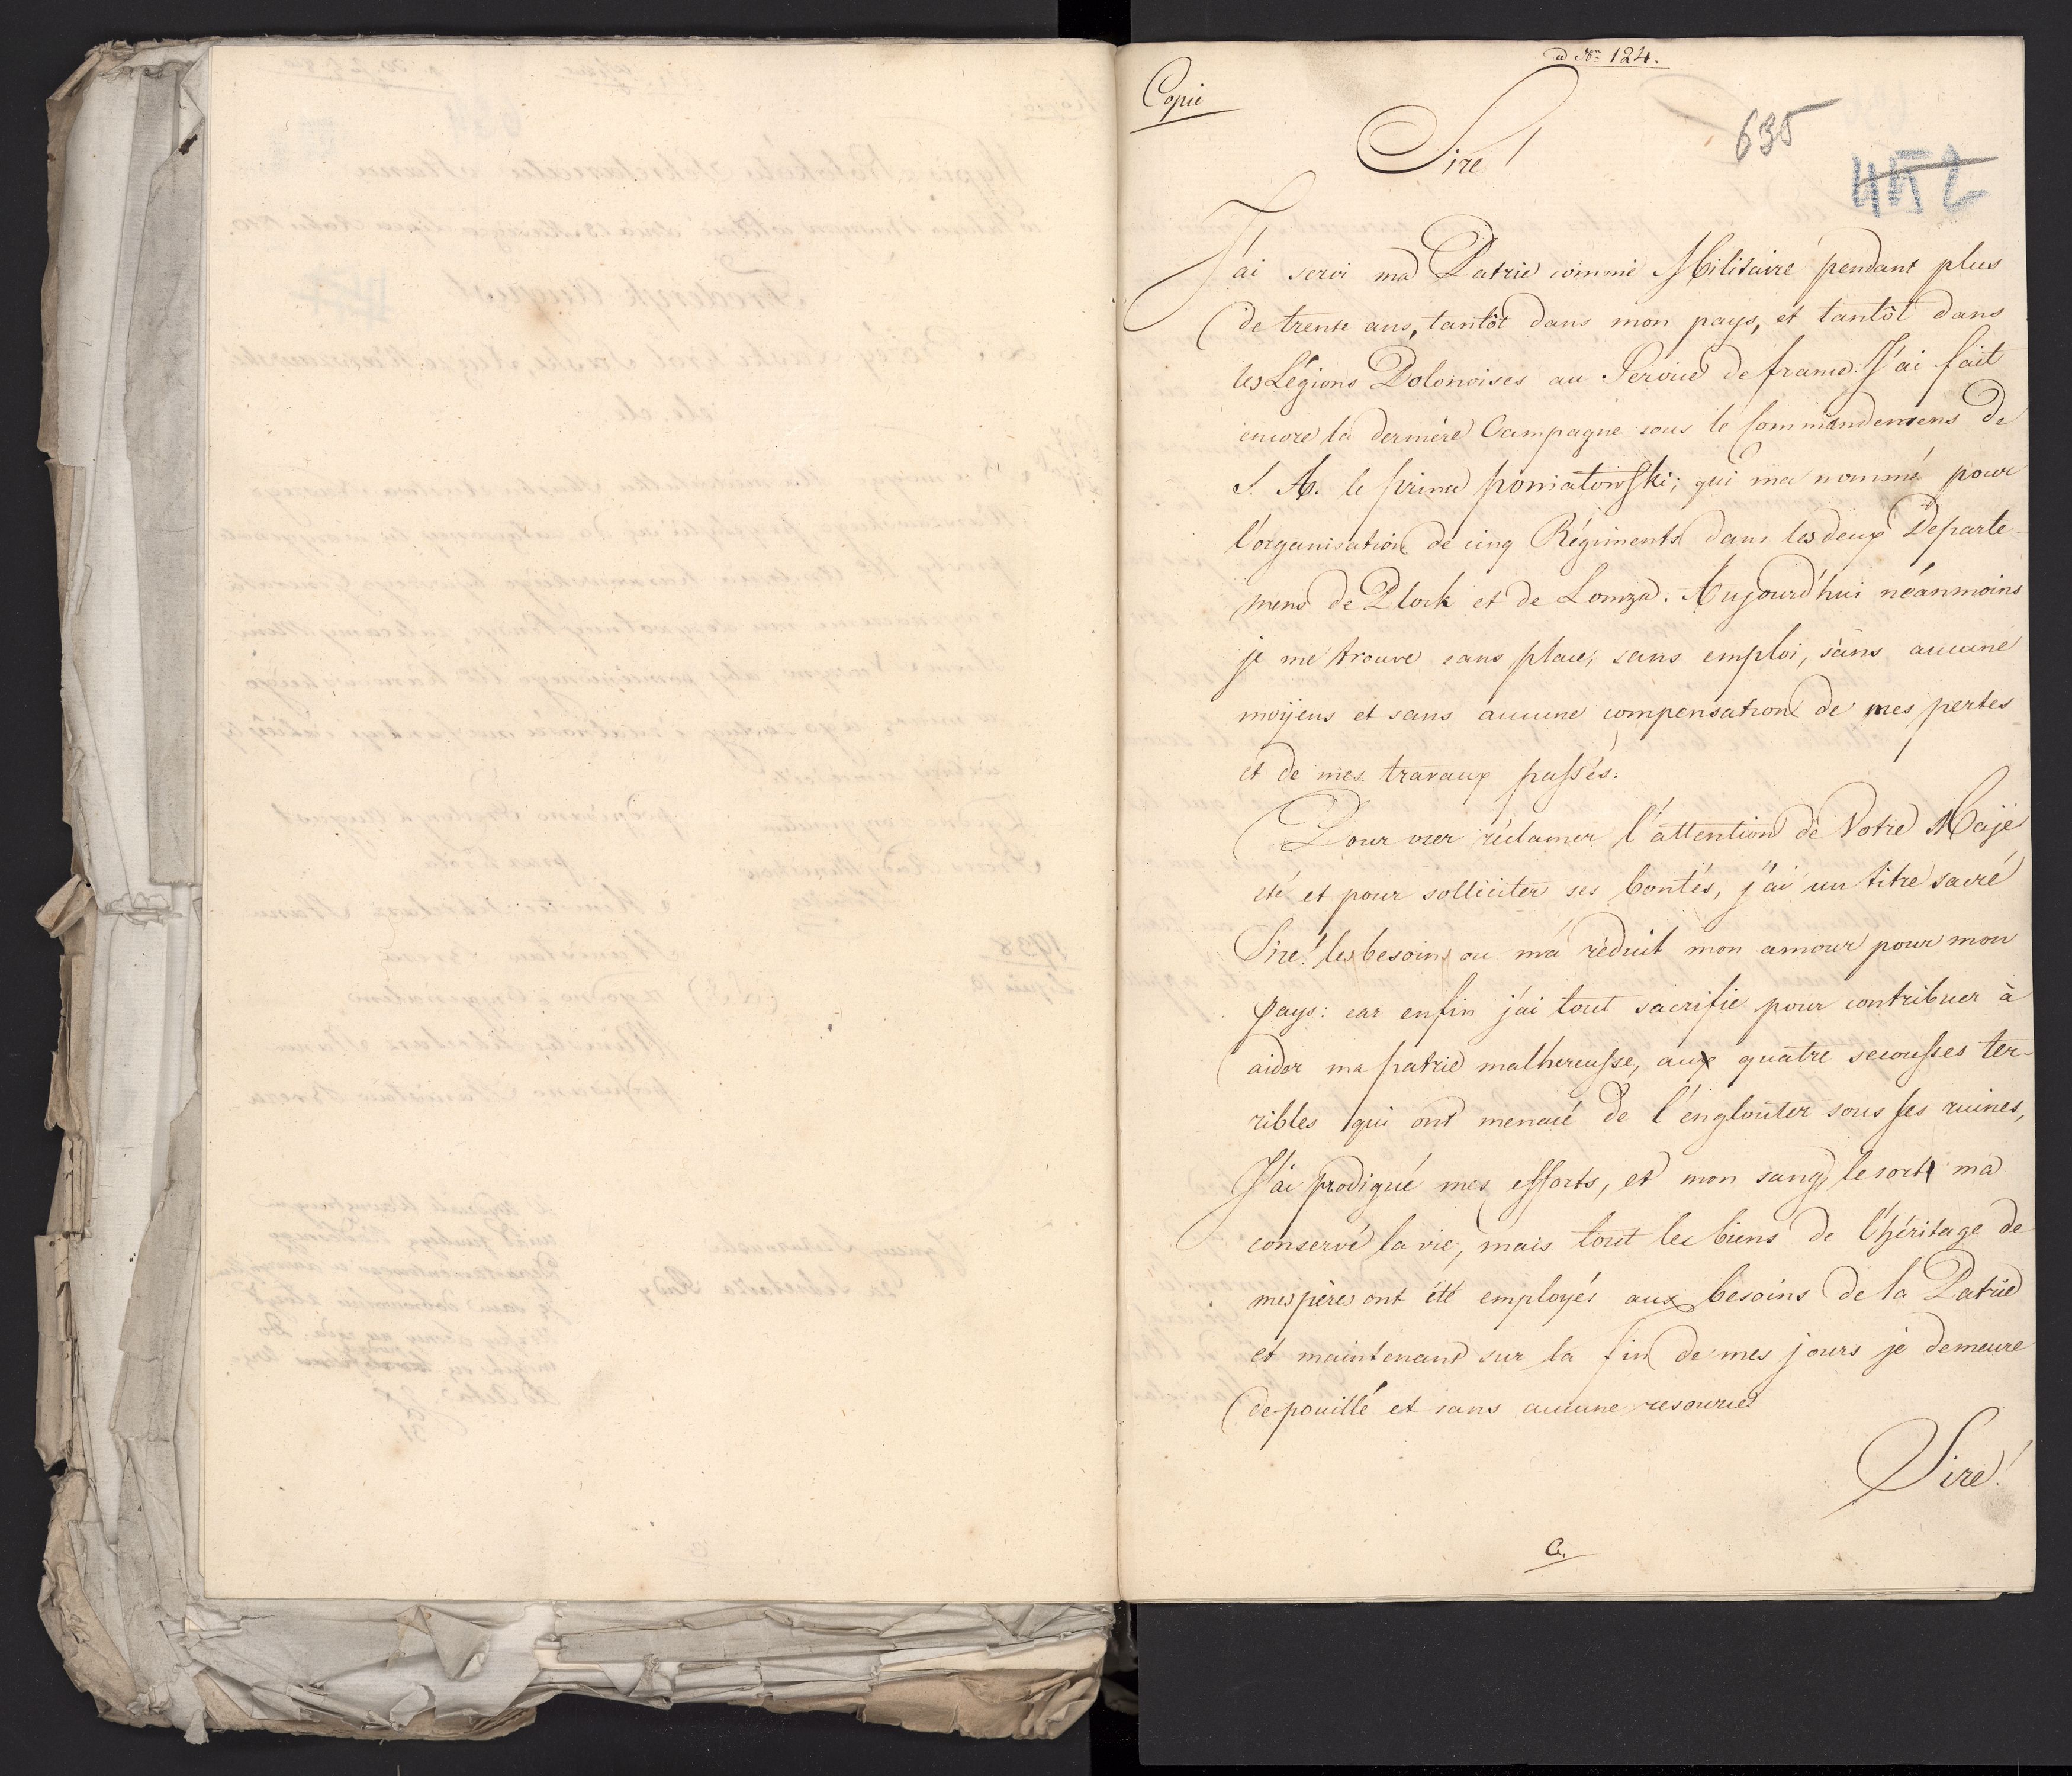 ad Nrm 124.
Copie
635
452
Sire!
J'ai servi ma Patrie comme Militaire pendant plus
de trente ans, tantôt dans mon pays, et tantôt dans
les Légions Polonoises au Service de france. J'ai fait
encore la derniére Campagne sous le Commandemens de
S. A. le prince poniatowski; qui ma nommé pour
l'organisation de cinq Régiments dans les deux Departe-
mens de Plock et de Lomza. Aujourd'hui néanmoins
je me trouve sans place, sans emploi, sans aucune
moyens et sans aucune compensation de mes pertes
et de mes travaux passés.
Pour oser réclamer l'attention de Votre Maje
sté et pour solliciter ses bontés, j'ai un titre sacré
Sire! les besoins ou m'a réduit mon amour pour mon
pays: car enfin j'ai tout sacrifie pour contribuer à
aider ma patrie malhereusse, aux quatre secousses ter-
ribles qui ont menacé de l'englouter sous ses ruines,
J'ai prodigué mes efforts, et mon sang, le sort ma
conservé la vie, mais tout les biens de l'héritage de
mes péres ont été employés aux besoins de la Patrie
et maintenant sur la fin de mes jours je demeure
depouillé et sans aucune resource
Sire!